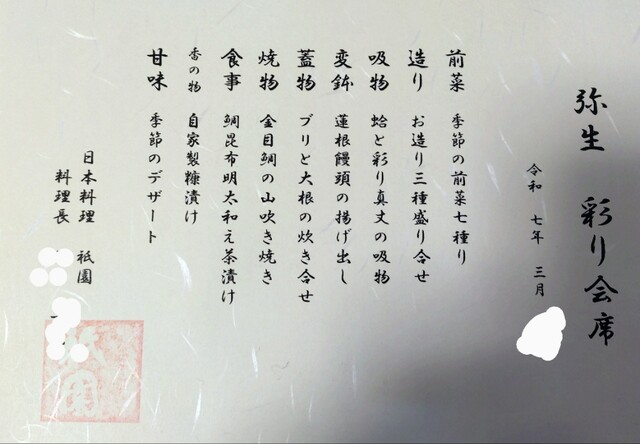 弥生 彩り会席
令和 七年 三月
前菜 季節の前菜七種り
造り お造り三種盛り合せ
吸物 蛤と彩り真丈の吸物
変鉢 蓮根饅頭の揚げ出し
蓋物 ブリと大根の炊き合せ
焼物 金目鯛の山吹き焼き
食事 鯛昆布明太和え茶漬け
香の物 自家製糠漬け
甘味 季節のデザート
日本料理 祇園
料理長